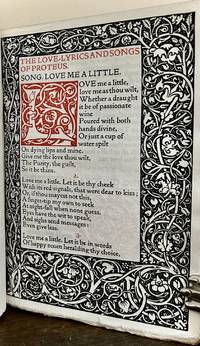 THE LOVE-LYRICS AND SONGS
OF PROTEUS.
SONG. LOVE ME A LITTLE.
LOVE me a little,
love me as thou wilt,
Whether a draught
it be of passionate
wine
Poured with both
hands divine,
Or just a cup of
water spilt
On dying lips and mine.
Give me the love thou wilt,
The Purity, the guilt,
So it be thine.
2.
Love me a little. Let it be thy cheek
With its red signals, that were dear to kiss;
Or, if thou mayest not this,
A finger-tip my own to seek
At nightfall when none guess.
Eyes have the wit to speak,
And sighs send messages:
Even give less.
3.
Love me a little. Let it be in words
Of happy omen heralding thy choice,